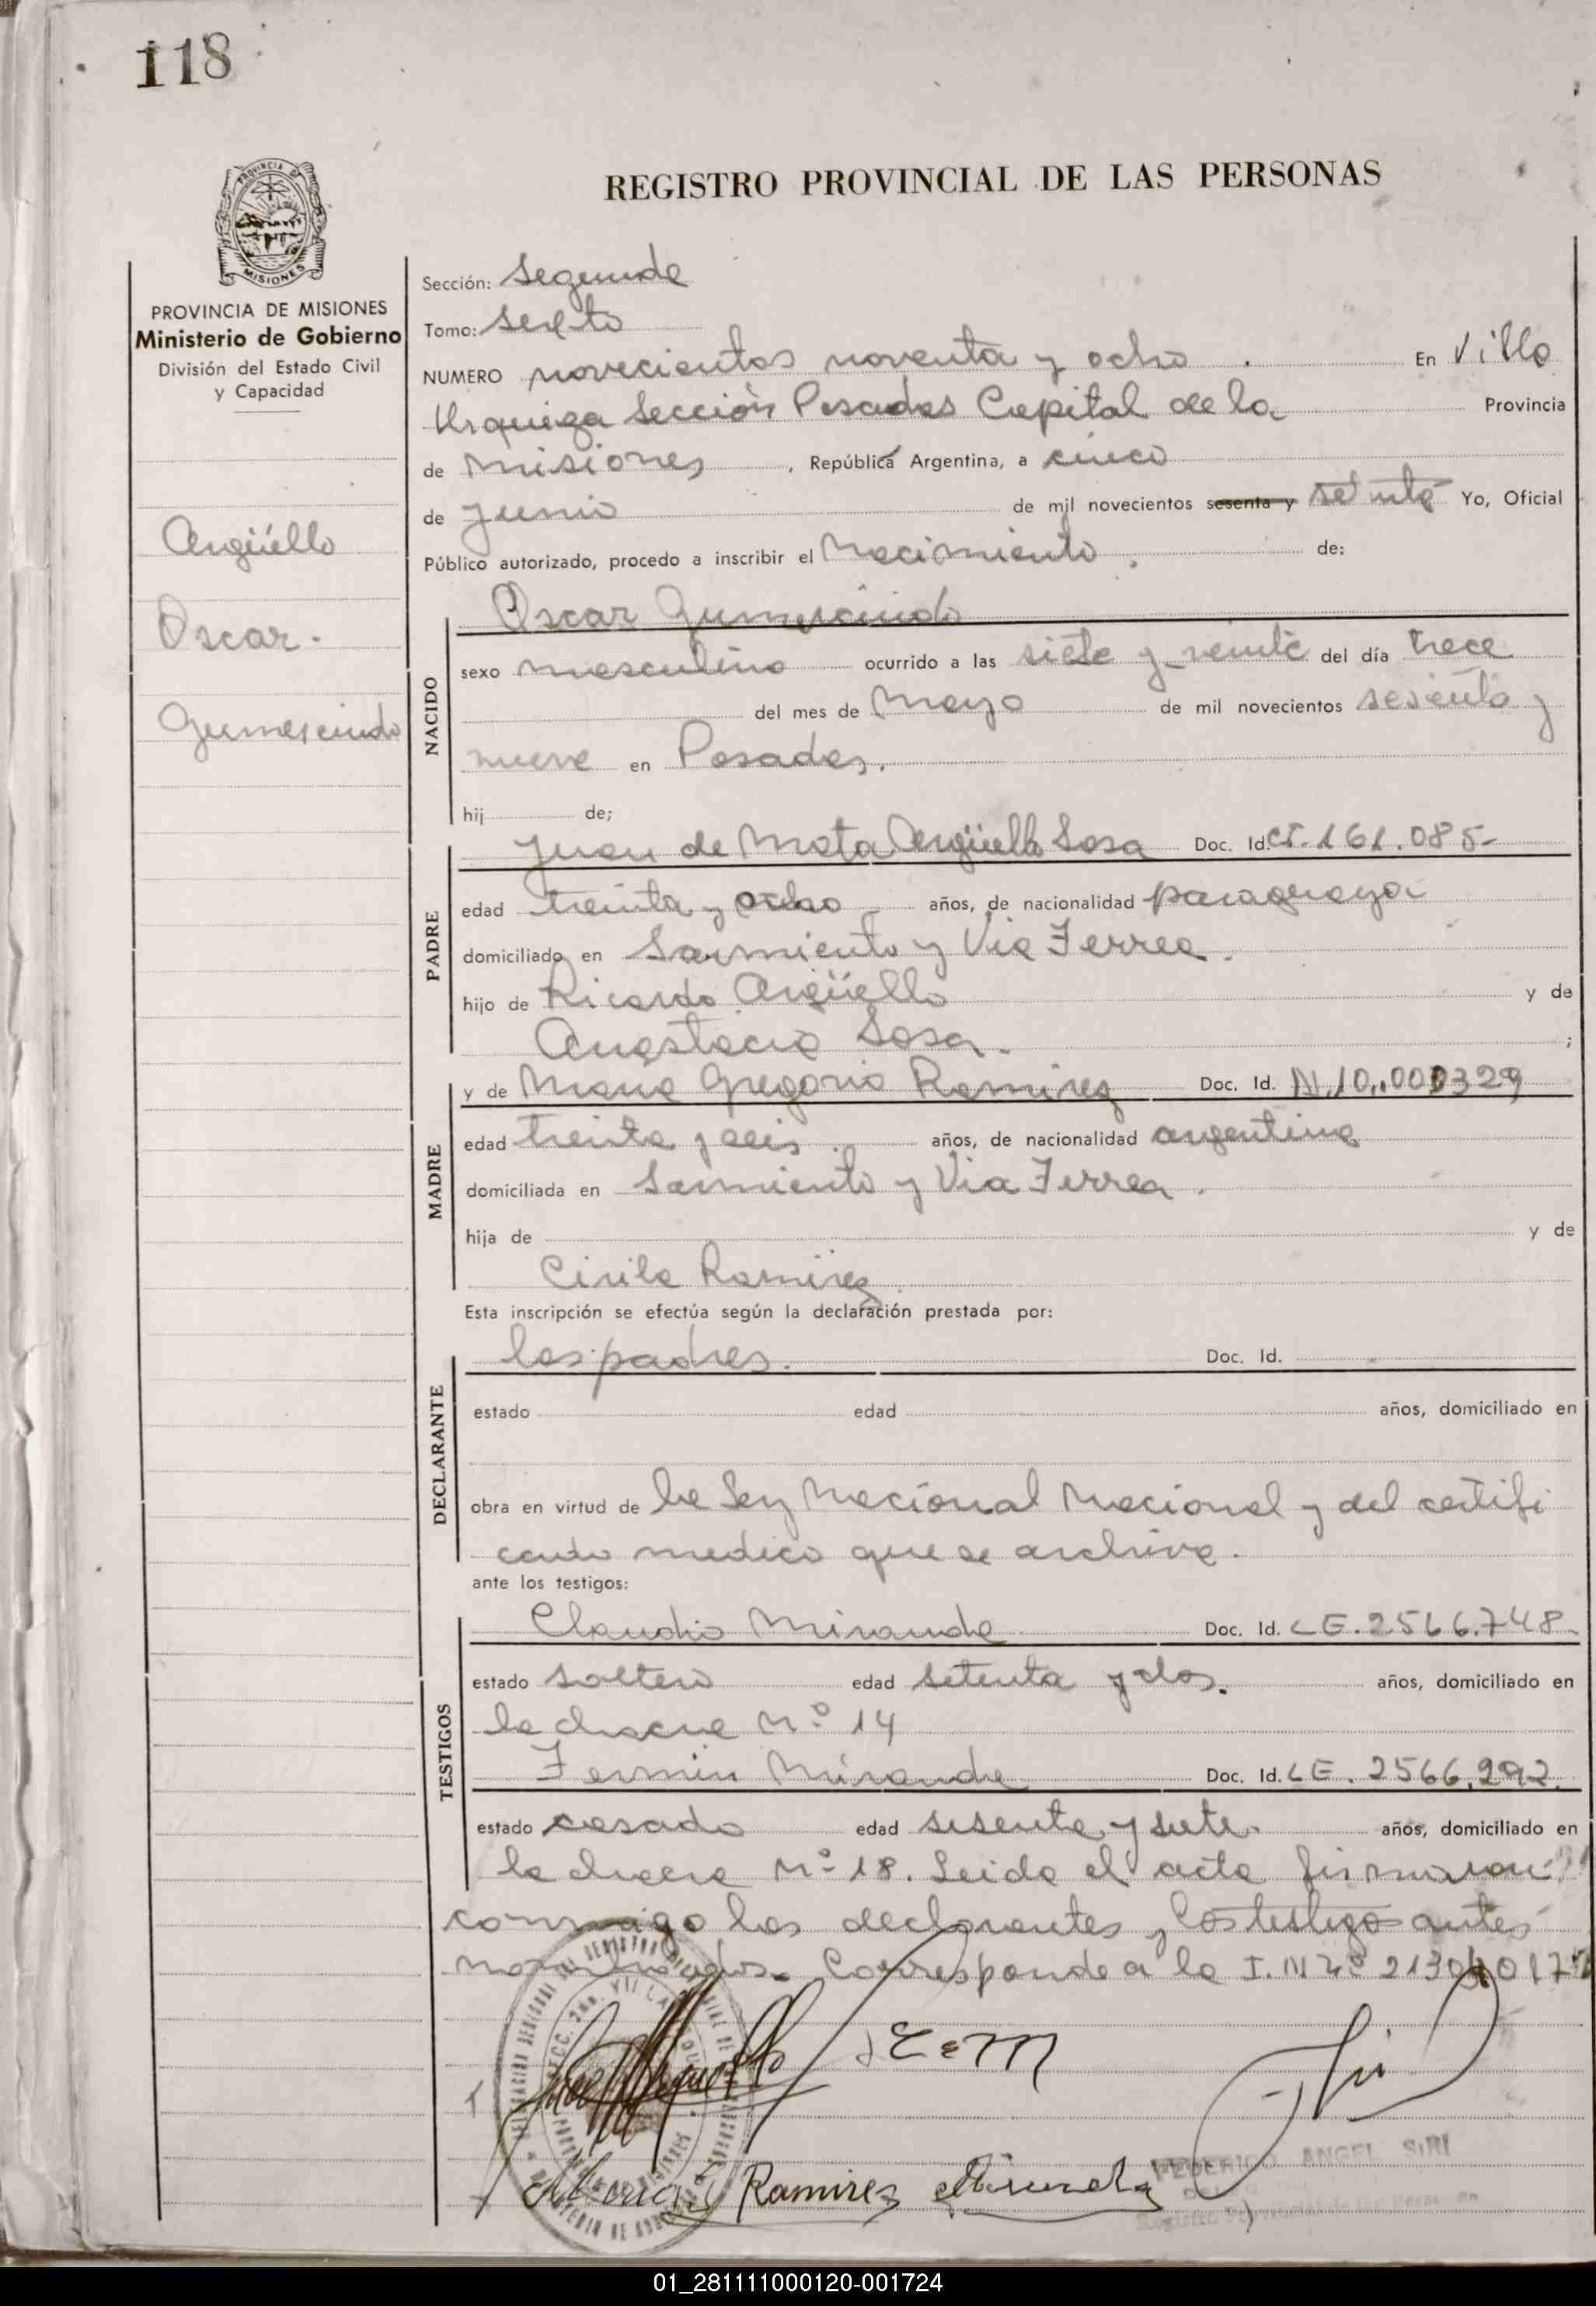 118
PROVINCIA
MISIONES
REGISTRO PROVINCIAL DE LAS PERSONAS
PROVINCIA DE MISIONES
Ministerio de Gobierno
División del Estado Civil
y Capacidad
Argüello
Oscar.
Gumercindo
Sección: Segunda
Tomo: Sexto
NUMERO novecientos noventa y ocho . En Villa
Urquiza Sección Posadas Capital de la Provincia
de Misiones , República Argentina, a cinco
de Junio de mil novecientos sesenta y setenta Yo, Oficial
Público autorizado, procedo a inscribir el Nacimiento . de:
Oscar Gumercindo
NACIDO
sexo masculino ocurrido a las siete y veinte del día trece
del mes de Mayo de mil novecientos sesenta y
nueve en Posadas.
hij de;
PADRE
Juan de Mata Argüello Sosa Doc. Id. CI. 161.085-
edad treinta y ocho años, de nacionalidad paraguaya
domiciliado en Sarmiento y Via Ferrea.
hijo de Ricardo Argüello y de
Anastacia Sosa. ;
MADRE
y de Maria Gregoria Ramirez Doc. Id.
edad treinta y seis . años, de nacionalidad argentina
domiciliada en Sarmiento y Via Ferrea .
hija de y de
Cirila Ramirez
Esta inscripción se efectúa según la declaración prestada por:
DECLARANTE
los padres. Doc. Id.
estado edad años, domiciliado en
obra en virtud de la Ley Nacional Nacional y del certifi
cado medico que se archiva.
ante los testigos:
TESTIGOS
Claudio Miranda Doc. Id. LE. 2566.748
estado soltero edad setenta y dos. años, domiciliado en
la chacra Nº 14
Fermin Miranda Doc. Id. LE. 2566.292.
estado casado edad sesenta y siete. años, domiciliado en
la chacra Nº 18. Leida el acta firmaron
conmigo los declarantes y los testigos antes
nombrados. Corresponde a la I. N Nº
Ramirez
FEDERICO ANGEL SIRI
01_281111000120-001724